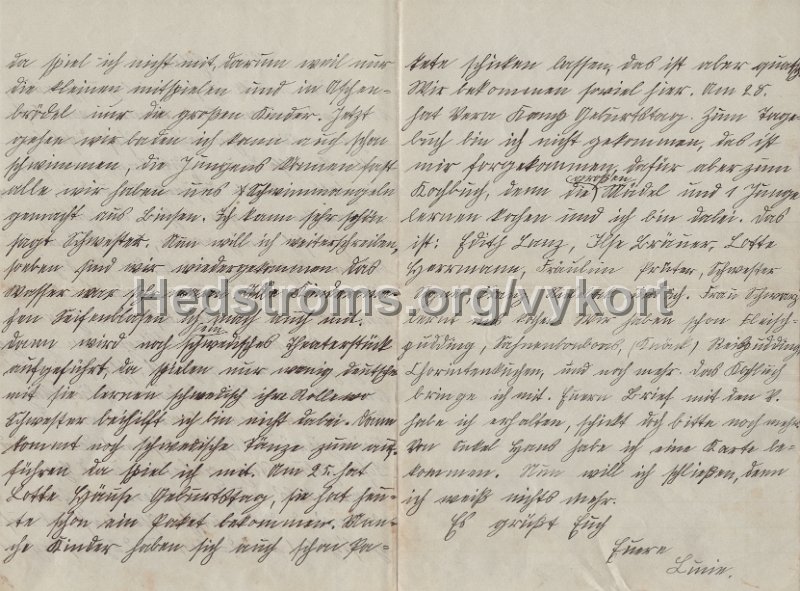 da spiel ich nicht mit, darum weil nur
die kleinen mitspielen und in Aschen-
brödel nur die großen Kinder. Jetzt
gehen wir baden ich kann auch schon
schwimmen, die Jungens können fast
alle wir haben uns Schwimmangeln
gemacht aus Binsen. Ich kann sehr
sagt Schwester. Nun will ich weiterschreiben,
soeben sind wir wiedergekommen das
Wasser war Alle Kinder
Seifenblasen ich auch mit.
Dann wird noch ein schwedisches Theaterstück
aufgeführt, da spielen nur wenig deutsche
mit sie lernen schwedisch ihre Rolle wo
Schwester beihilft ich bin nicht dabei. Dann
kommt noch schwedische Tänze zum auf-
führen da spiel ich mit. Am 25. hat
Lotte Hänse Geburtstag, sie hat heu-
te schon ein Paket bekommen. Man-
che Kinder haben sich auch schon Pa-
kete schicken lassen, das ist aber quatsch
Wir bekommen soviel hier. Am 28.
hat Vera Kamp Geburtstag. Zum Tage-
buch bin ich nicht gekommen, das ist
mir forgekommen, dafür aber zum
Kochbuch, denn die großen Mädel und 1 Junge
lernen kochen und ich bin dabei. Das
ist: Edith Lanz, Ilse Bräuer, Lotte
Herrmann, Fräulein Prüter, Schwester
Frau Schwarz
lernt uns kochen. Wir haben schon Fleisch-
pudding, Sahnenbonbons, (Snack) Reispudding
und noch mehr. Das Kochbuch
bringe ich mit. Euern Brief mit den
habe ich erhalten, schickt doch bitte noch mehr.
Von Onkel Hans habe ich eine Karte be-
kommen. Nun will ich schließen, denn
ich weiß nichts mehr.
Es grüßt Euch
Euere
Luzie.
Hedstroms.org/vykort